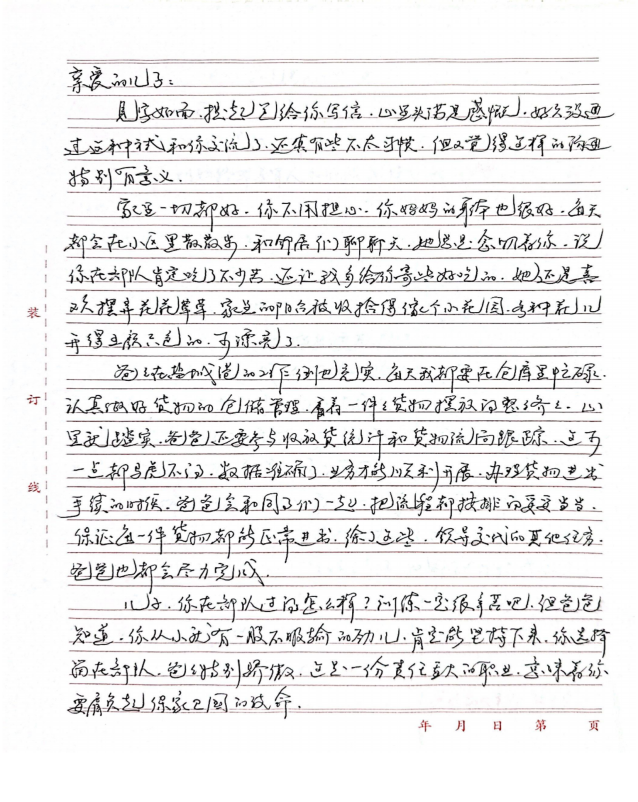 亲爱的儿子：
见字如面，提起笔给你写信，心里头满是感慨，好久没通
过这种方式和你交流了，还真有些不太习惯，但又觉得这样的沟通
特别有意义。
家里一切都好，你不用担心，你妈妈的身体也很好，每天
都会在小区里散散步，和邻居们聊聊天，她总是念叨着你，说
你在部队肯定吃了不少苦，还让我多给你寄些好吃的。她还是喜
欢摆弄花花草草，家里的阳台被收拾得像个小花园，各种花儿
开得五颜六色的，可漂亮了。
爸爸在盐城港的工作倒也充实，每天我都要在仓库里忙碌，
认真做好货物的仓储管理，看着一件件货物摆放得整整齐齐，心
里就踏实，爸爸还要参与收放货统计和货物流向跟踪，这可
一点都马虎不得，数据准确了，业务才能顺利开展，办理货物进出
手续的时候，爸爸会和同事们一起，把流程都安排的妥妥当当，
保证每一件货物都能正常进出，除了这些，领导交代的其他任务
爸爸也都会尽力完成。
儿子，你在部队过得怎么样？训练一定很辛苦吧，但爸爸
知道，你从小就有一股不服输的劲儿，肯定能坚持下来，你选择
留在部队，爸爸特别骄傲，这是一份责任重大的职业，意味着你
要肩负起保家卫国的使命。
装
订
线
年 月 日 第 页